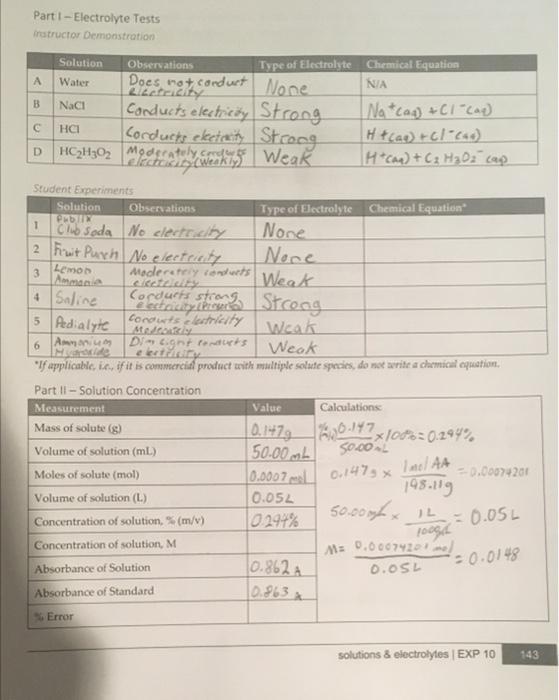 Part I – Electrolyte Tests
Instructor Demonstration
Solution Observations Type of Electrolyte Chemical Equation
A Water Does not conduct electricity None N/A
B NaCl Conducts electricity Strong Na+(aq) + Cl-(aq)
C HCl Conducts electricity Strong H+(aq) + Cl-(aq)
D HC2H3O2 Moderately conducts electricity (weakly) Weak H+(aq) + C2H3O2-(aq)
Student Experiments
Solution Observations Type of Electrolyte Chemical Equation*
1 Publix Club Soda No electricity None
2 Fruit Punch No electricity None
3 Lemon Ammonia Moderately conducts electricity Weak
4 Saline Conducts strong electricity Strong
5 Pedialyte Conducts electricity Moderately Weak
6 Ammonium Hydroxide Dim light conducts electricity Weak
*If applicable, i.e., if it is commercial product with multiple solute species, do not write a chemical equation.
Part II – Solution Concentration
Measurement Value Calculations:
Mass of solute (g) 0.147g
Volume of solution (mL) 50.00 mL
Moles of solute (mol) 0.0007 mol
Volume of solution (L) 0.05L
Concentration of solution, % (m/v) 0.294%
Concentration of solution, M
Absorbance of Solution 0.862 A
Absorbance of Standard 0.863 A
% Error
0.147
50.00mL
x100%=0.294%
0.147g x 1mol AA
198.11g
=0.00074201
50.00mL x 1L
1000mL
= 0.05L
M= 0.00074201 mol
0.05L
= 0.0148
solutions & electrolytes | EXP 10 143